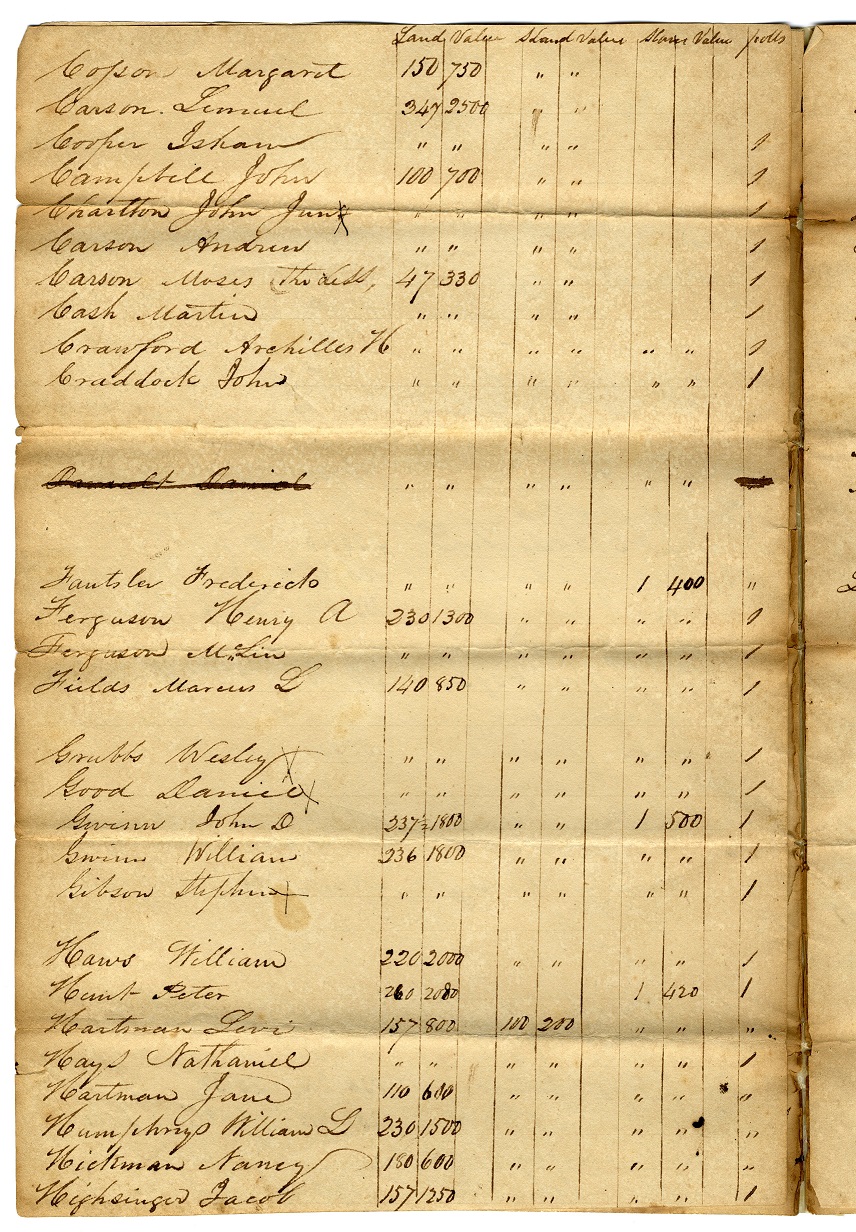 Land Value S Land Value Slaves Value polls
Copson Margaret 150 750 " "
Carson Lemuel 347 2500 " "
Cooper Isham " " " " 1
Campbell John 100 700 " " 1
Charlton John Jun x " " " " 1
Carson Andrew " " " " 1
Carson Moses (the less, 47 330 " " 1
Cash Martin " " " " 1
Crawford Archilles H " " " " " " 1
Craddock John " " " " " " 1
Daniel " " " " " "
Fautsler Frederick " " " " 1 400 "
Ferguson Henry A 230 1300 " " " " 1
Ferguson McLin " " " " " " 1
Fields Marcus L 140 850 " " " " 1
Grubbs Wesley x " " " " " " 1
Good Daniel x " " " " " " 1
Gwinn John D 237½ 1800 " " 1 500 1
Gwinn William 236 1800 " " " " 1
Gibson Stephen x " " " " " " 1
Haws William 220 2000 " " " " 1
Hunt Peter 260 2080 1 420 1
Hartman Levi 157 800 100 200 " " "
Hays Nathaniel " " " " " " 1
Hartman Jane 110 600 " " " " "
Humphrys William L 230 1500 " " " " "
Hickman Nancy 180 600 " " " " "
Highsinger Jacob 157 1250 " " " " 1